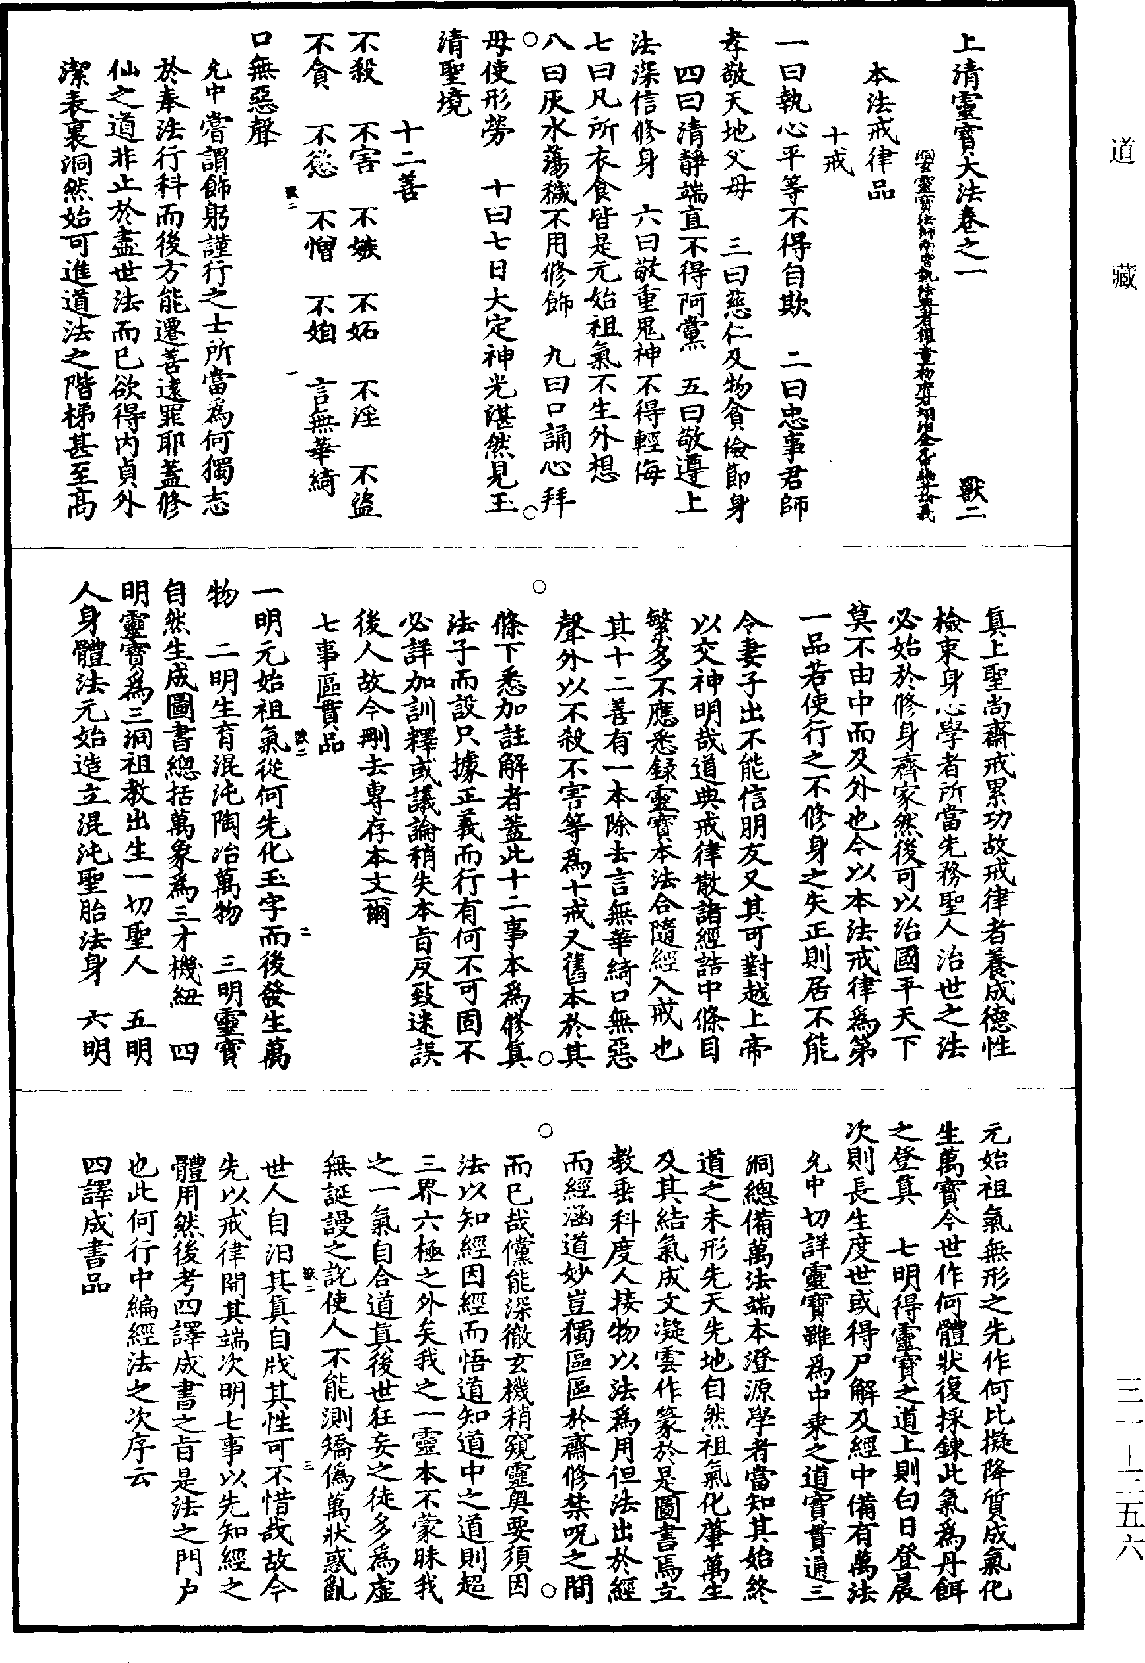 上清靈寶大法卷之一　獸二
洞微靈寶法師南曹執法典者權童初府右翊治金允中編
本法戒律品
十戒
一曰執心平等不得自欺　二曰忠事君師
孝敬天地父母　三曰慈仁及物貪儉節身
四曰清靜端直不得阿黨　五曰敬遵上
法深信修身　六曰敬重鬼神不得輕侮
七曰凡所衣食皆是元始祖氣不生外想
八曰灰水蕩穢不用修飾　九曰口誦心拜
毋使形勞　十曰七日大定神光湛然見玉
清聖境
十二善
不殺　不害　不嫉　不妬　不淫　不盜
不貪　不慾　不憎　不　　言無華綺
口無惡聲
允中嘗謂飾躬謹行之士所當為何獨志
於奉法行科而後方能遷善遠罪耶蓋修
仙之道非止於盡世法而已欲得內貞外
潔表裏洞然始可進道法之階梯甚至高
真上聖尚齋戒累功故戒律者養成德性
檢束身心學者所當先務聖人治世之法
必始於修身齊家然後可以治國平天下
莫不由中而及外也今以本法戒律為第
一品若使行之不修身之失正則居不能
令妻子出不能信朋友又其可對越上帝
以交神明哉道典戒律散諸經誥中條目
繁多不應悉錄靈寶本法合隨經入戒也
其十二善有一本除去言無華綺口無惡
聲外以不殺不害等為十戒又舊本於其
條下悉加註解者蓋此十二事本為修真
法子而設只據正義而行有何不可固不
必詳加訓釋或議論稍失本旨反致迷誤
後人故今刪去專存本文爾
七事區貫品
一明元始祖氣從何先化玉字而後發生萬
物　二明生育混沌陶冶萬物　三明靈寶
自然生成圖書總括萬象為三才機紐　四
明靈寶為三洞祖教出生一切聖人　五明
人身體法元始造立混沌聖胎法身　六明
元始祖氣無形之先作何比擬降質成氣化
生萬寶今世作何體狀復採鍊此氣為丹餌
之登真　七明得靈寶之道上則白日登晨
次則長生度世或得尸解及經中備有萬法
允中切詳靈寶雖為中乘之道實貫通三
洞總備萬法端本澄源學者當知其始終
道之未形先天先地自然祖氣化肇萬生
及其結氣成文凝雲作篆於是圖書焉立
教垂科度人接物以法為用但法出於經
而經涵道妙豈獨區區於齋修禁呪之間
而已哉儻能深徹玄機稍窺靈奧要須因
法以知經因經而悟道知道中之道則超
三界六極之外矣我之一靈本不蒙昧我
之一氣自合道真後世狂妄之徒多為虛
無誕謾之說使人不能測矯偽萬狀惑亂
世人自汨其真自戕其性可不惜哉故今
先以戒律開其端次明七事以先知經之
體用然後考四譯成書之旨是法之門戶
也此何行中編經法之次序云
四譯成書品
道藏
三一—三五六